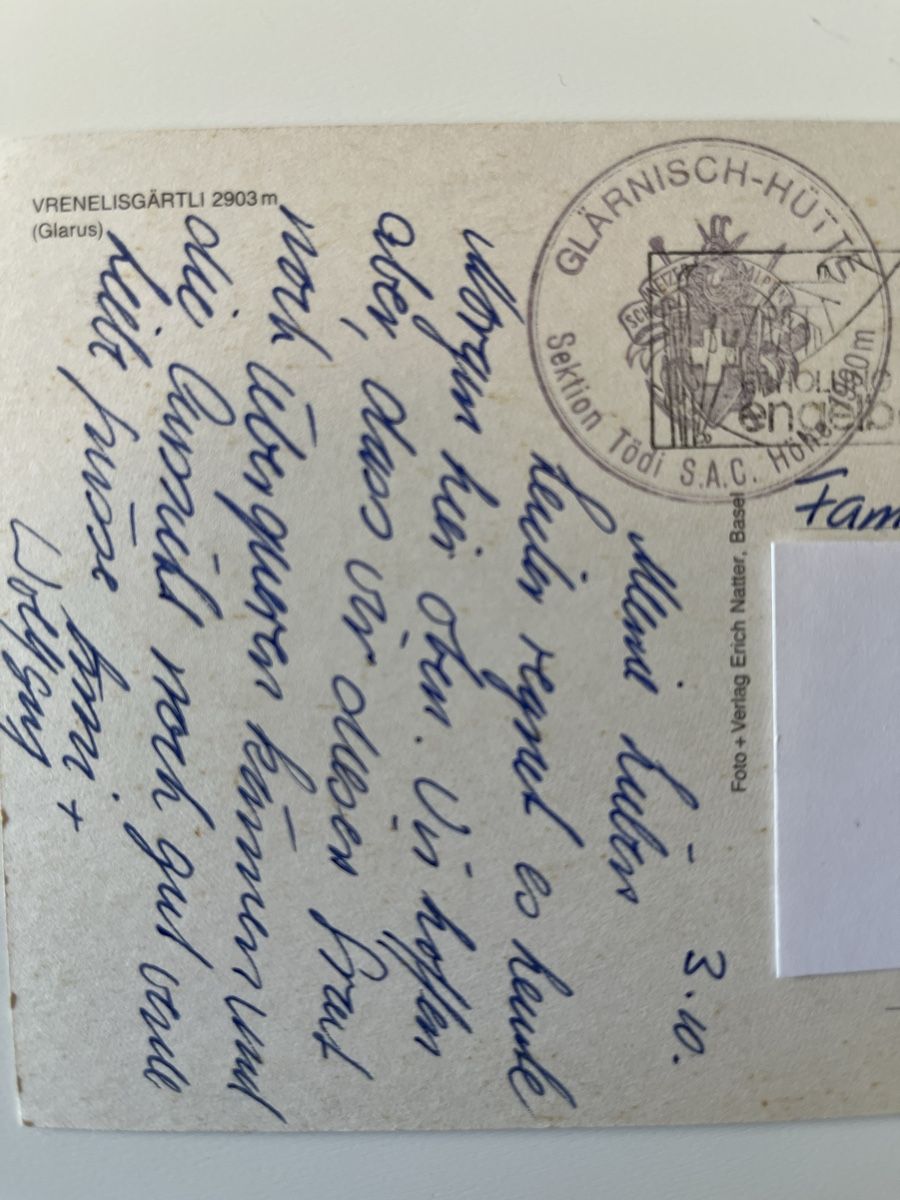 VRENELISGÄRTLI 2903 m
(Glarus)
GLÄRNISCH-HÜTTE
Sektion Tödi S.A.C. Höhe 1990 m
Foto + Verlag Erich Natter, Basel
Fam
3.10.
Meine Lieben
Leider regnet es heute
Morgen hier oben. Wir hoffen
aber, dass wir diesen Grat
noch überqueren können und
die Aussicht noch gut
Grüsse
+
Wolfgang